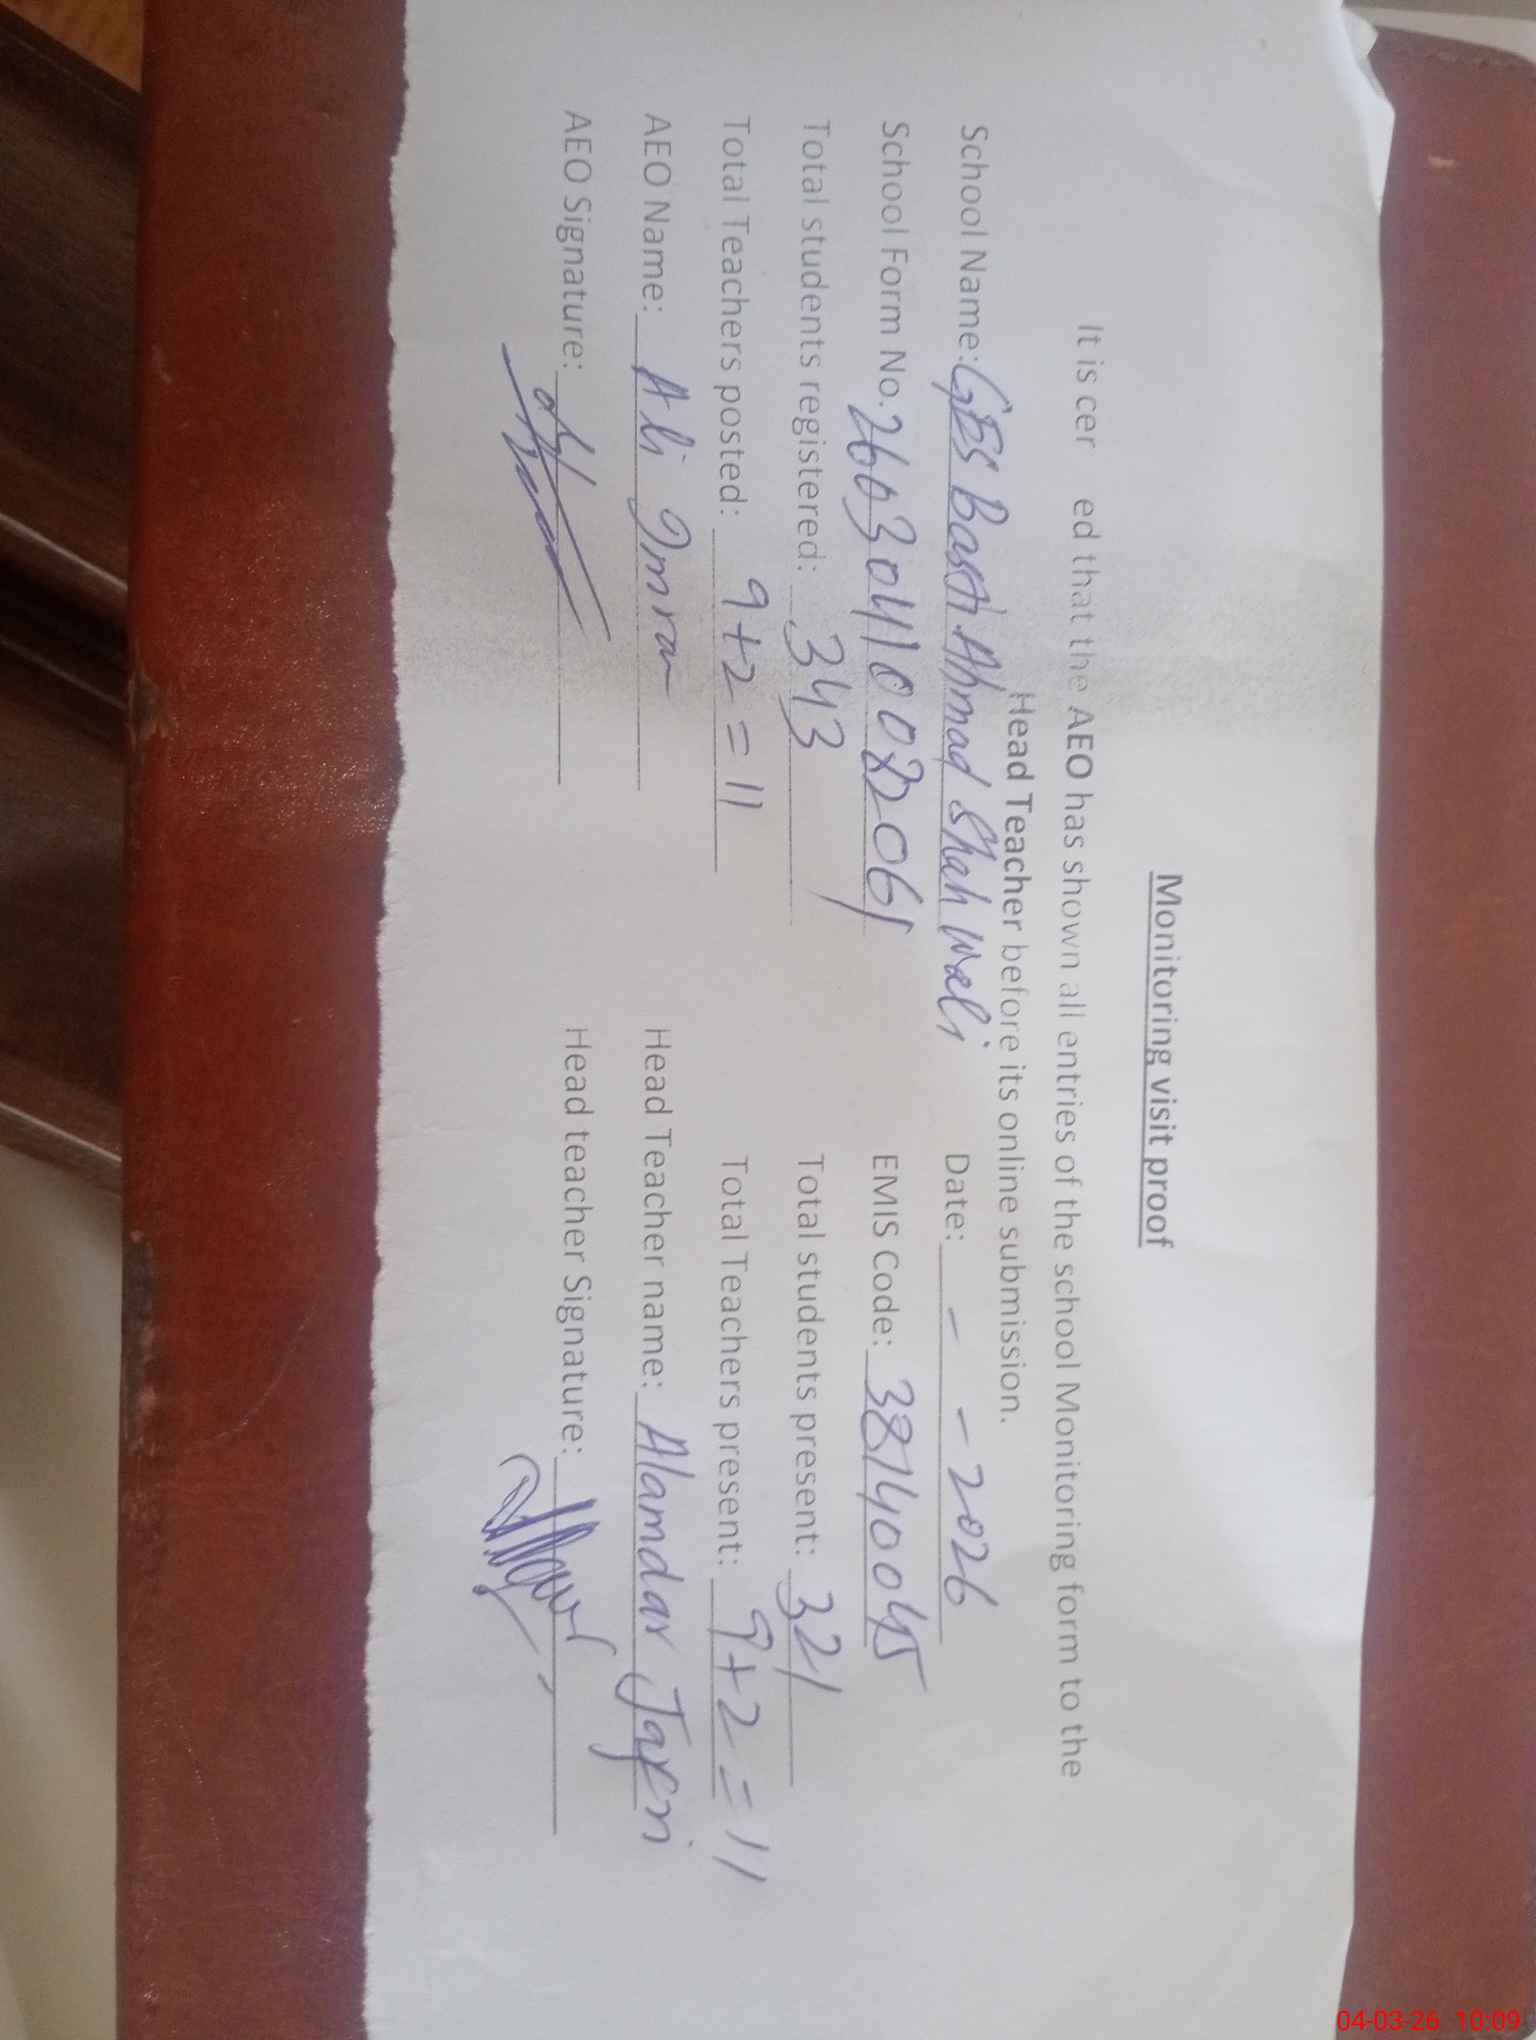 Monitoring visit proof
It is cer ed that the AEO has shown all entries of the school Monitoring form to the
Head Teacher before its online submission.
School Name: GES Basti Ahmad Shah Wali Date: - - 2026
School Form No. 26030410022061 EMIS Code: 38140045
Total students registered: 343 Total students present: 321
Total Teachers posted: 9+2=11 Total Teachers present: 9+2=11
AEO Name: Ali Imran Head Teacher name: Alamdar Jafri
AEO Signature: Head teacher Signature:
04-03-26 10:09